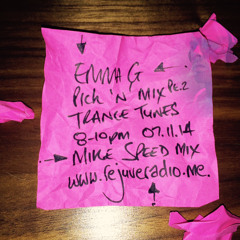 EMMA G
Pick 'N' MIX Pt.2
TRANCE TUNES
8-10pm 07.11.14
MIKE SPEED MIX
www.rejuveradio.me.